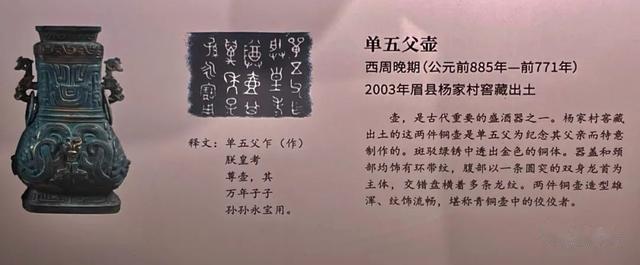 单五父壶
西周晚期（公元前885年—前771年）
2003年眉县杨家村窖藏出土
壶，是古代重要的盛酒器之一。杨家村窖藏
出土的这两件铜壶是单五父为纪念其父亲而特意
制作的。斑驳绿锈中透出金色的铜体。器盖和颈
部均饰有环带纹，腹部以一条圆突的双身龙首为
主体，交错盘横着多条龙纹。两件铜壶造型雄
浑、纹饰流畅，堪称青铜壶中的佼佼者。
释文：单五父乍（作）
朕皇考
尊壶，其
万年子子
孙孙永宝用。